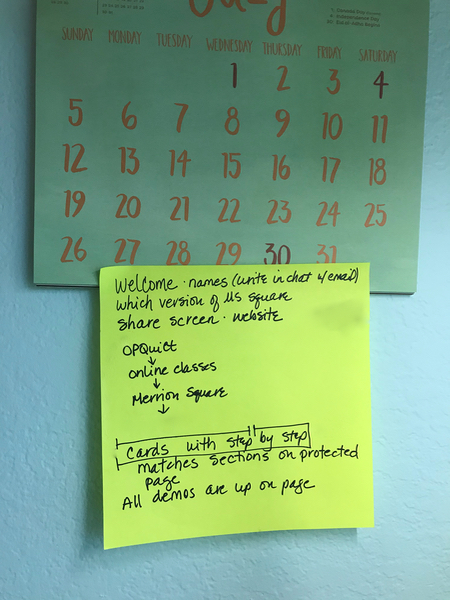 July
1. Canada Day
4. Independence Day
SUNDAY MONDAY TUESDAY WEDNESDAY THURSDAY FRIDAY SATURDAY
1 2 3 4
5 6 7 8 9 10 11
12 13 14 15 16 17 18
19 20 21 22 23 24 25
26 27 28 29 30 31
Welcome · names (write in chat w/ email)
which version of MS square
share screen · website
OPQuilt
↓
online classes
↓
Merrion Square
↓
Cards with step by step
matches sections on protected
page
All demos are up on page